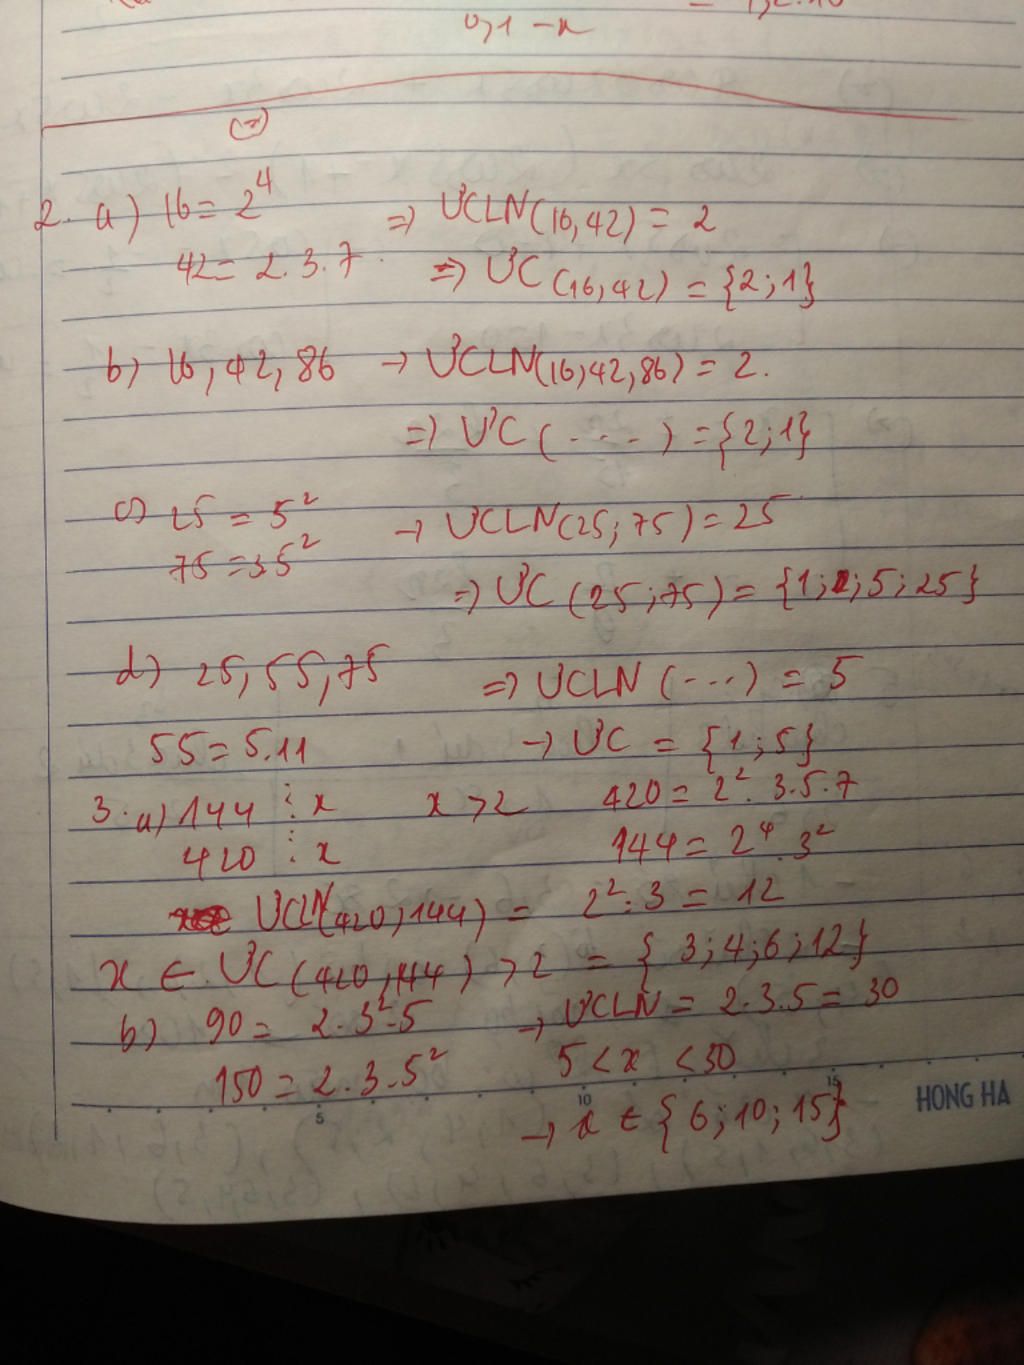 0,1 - x
(*)
2. a) 16 = 2⁴ => ƯCLN(16,42) = 2
42 = 2.3.7 => ƯC(16,42) = {2;1}
b) 16,42,86 → ƯCLN(16,42,86) = 2.
=> ƯC(....) = {2;1}
c) 25 = 5² → ƯCLN(25;75) = 25
75 = 35²
=> ƯC(25;75) = {1; ;5;25}
d) 25,55,75 => ƯCLN(...) = 5
55 = 5.11 → ƯC = {1;5}
3. a) 144 ⋮ x x > 2 420 = 2².3.5.7
420 ⋮ x 144 = 2⁴.3²
ƯCLN(420,144) = 2².3 = 12
x ∈ ƯC(420,144) > 2 = {3;4;6;12}
b) 90 = 2.3².5 → ƯCLN = 2.3.5 = 30
150 = 2.3.5² 5 < x < 30
→ x ∈ {6;10;15}
5 10 15 HONG HA